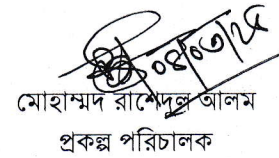 ০৪/০৩/২৫
মোহাম্মদ রাশেদুল আলম
প্রকল্প পরিচালক